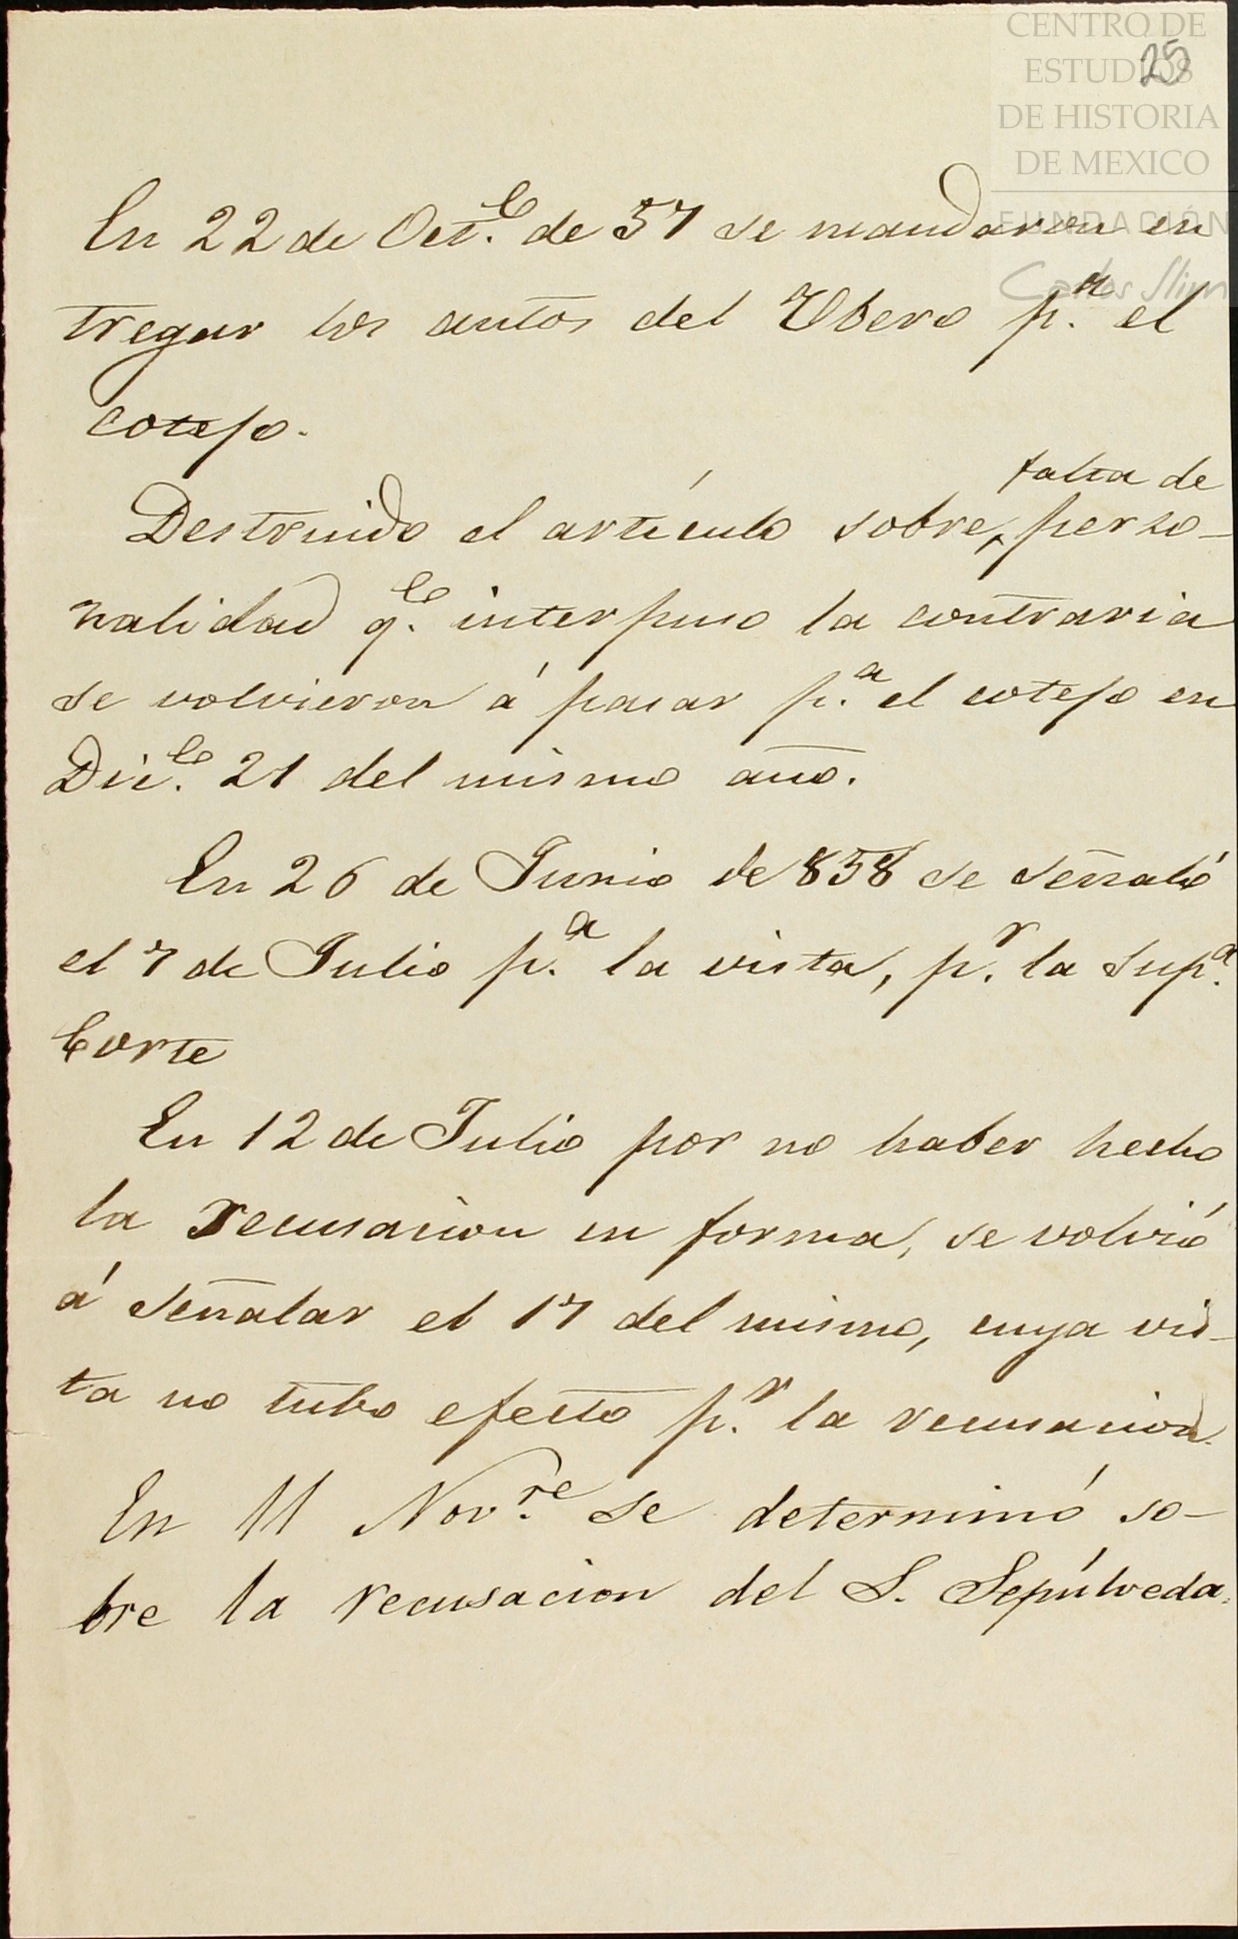 CENTRO DE
ESTUDIOS
DE HISTORIA
DE MEXICO
FUNDACIÓN
Carlos Slim
25
En 22 de Oct.e de 57 se mandaron en
tregar los autos del Ubero p.a el
cotejo.
falta de
Destruido el artículo sobre perso-
nalidad q.e interpuso la contraria
se volvieron á pasar p.a el cotejo en
Dic.e 21 del mismo año.
En 26 de Junio de 858 se señaló
el 7 de Julio p.a la vista, p.r la Sup.a
Corte
En 12 de Julio por no haber hecho
la recusacion en forma, se volvió
á señalar el 17 del mismo, cuya vis-
ta no tubo efecto p.r la recusacion.
En 11 Nov.re se determinó so-
bre la recusacion del S. Sepúlveda.